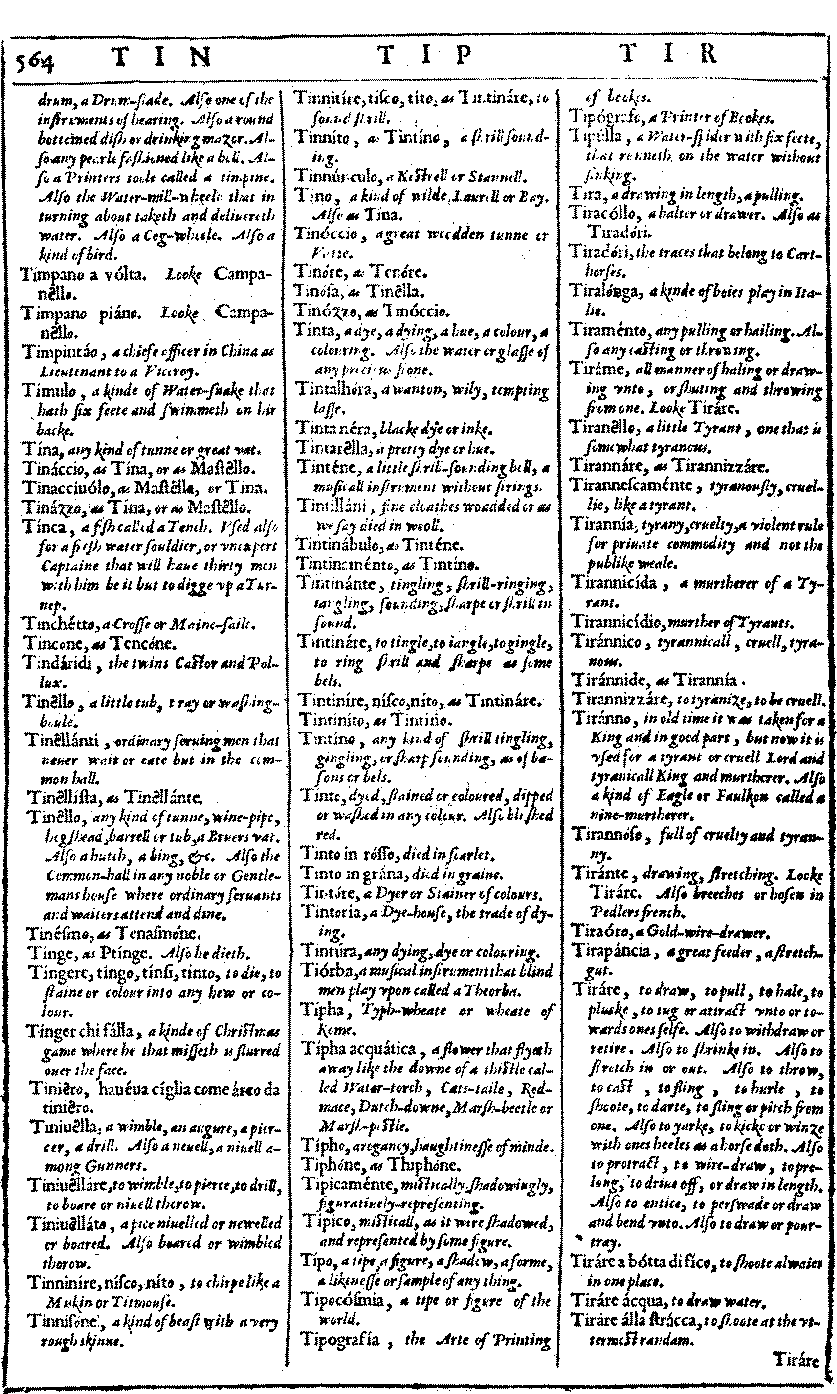 564 TIN TIP TIR
drum, a Drum-slade. Also one of the
instruments of hearing. Also a round
bottomed dish or drinking mazer. Al-
so any pearle fashioned like a bell. Al-
so a Printers toole called a timpine.
Also the Water-mill-wheele that in
turning about taketh and delivereth
water. Also a Cog-wheele. Also a
kind of bird.
Tímpano a vólta. Looke Campa-
nẽllo.
Tímpano piáno. Looke Campa-
nẽllo.
Timpintáo, a chiefe officer in China as
Lieutenant to a Viceroy.
Tímulo, a kinde of Water-snake that
hath six feete and swimmeth on hir
backe.
Tína, any kind of tunne or great vat.
Tináccio, as Tína, or as Mastẽllo.
Tinacciuólo, as Mastẽlla, or Tina.
Tinázzo, as Tina, or as Mastẽllo.
Tínca, a fish called a Tench. Vsed also
for a fresh water souldier, or vnexpert
Captaine that will haue thirty men
with him be it but to digge vp a Tur-
nep.
Tinchétto, a Crosse or Maine-saile.
Tincone, as Tencóne.
Tindáridi, the twins Castor and Pol-
lux.
Tinẽllo, a little tub, tray or washing-
boule.
Tinẽllánti, ordinary seruing men that
neuer wait or eate but in the com-
mon hall.
Tinẽllista, as Tinẽllánte.
Tinẽllo, any kind of tunne, wine-pipe,
hogshead, barrell or tub, a Bruers vat.
Also a hutch, a bing, &c. Also the
Common-hall in any noble or Gentle-
mans house where ordinary seruants
and waiters attend and dine.
Tinésmo, as Tenasmóne.
Tínge, as Ptinge. Also he dieth.
Tíngere, tingo, tinsi, tinto, to die, to
staine or colour into any hew or co-
lour.
Tínger chi fálla, a kinde of Christmas
game where he that misseth is slurred
ouer the face.
Tiniẽro, hauéua cíglia come árco da
tiniẽro.
Tiniuẽlla, a wimble, an augure, a pier-
cer, a drill. Also a neuell, a niuell a-
mong Gunners.
Tiniuẽlláre, to wimble, to pierce, to drill,
to boare or niuell thorow.
Tiniuẽlláto, a pice niuelled or newelled
or boared. Also boared or wimbled
thorow.
Tinniníre, nísco, níto, to chirpe like a
Muskin or Titmouse.
Tinnisóne, a kind of beast with a very
rough skinne.
Tinnitíre, tisco, títo, as Tintináre, to
sound shrill.
Tinníto, as Tintíno, a shrill sound-
ing.
Tinnúnculo, a Kestrell or Stannell.
Tino, a kind of wilde Laurell or Bay.
Also as Tina.
Tinóccio, a great wodden tunne or
Tinóre, as Tenóre.
Tinósa, as Tinẽlla.
Tinózzo, as Tinóccio.
Tinta, a dye, a dying, a hue, a colour, a
colouring. Also the water or glasse of
any precious stone.
Tintalhóra, a wanton, wily, tempting
lasse.
Tinta néra, blacke dye or inke.
Tintarẽlla, a pretty dye or hue.
Tinténe, a little shrill-sounding bell, a
musicall instrument without strings.
Tintilláni, fine cloathes woadded or as
we say died in wooll.
Tintinábulo, as Tinténe.
Tintinaménto, as Tintíno.
Tintinánte, tingling, shrill-ringing,
iangling, sounding, sharpe or shrill in
sound.
Tintináre, to tingle, to iangle, to gingle,
to ring shrill and sharpe as some
bels.
Tintiníre, nísco, níto, as Tintináre.
Tintiníto, as Tintíno.
Tintíno, any kind of shrill tingling,
gingling, or sharp sounding, as of ba-
sons or bels.
Tinto, dyed, stained or coloured, dipped
or washed in any colour. Also blushed
red.
Tinto in rósso, died in scarlet.
Tinto in grána, died in graine.
Tintóre, a Dyer or Stainer of colours.
Tintoria, a Dye-house, the trade of dy-
ing.
Tintúra, any dying, dye or colouring.
Tiórba, a musical instrument that blind
men play vpon called a Theorba.
Tipha, Typh-wheate or wheate of
Rome.
Tipha acquática, a flower that flyeth
away like the downe of a thistle cal-
led Water-torch, Cats-taile, Red-
mace, Dutch-downe, Marsh-beetle or
Marsh-pistle.
Tipho, arogancy, haughtinesse of minde.
Tiphóne, as Thiphóne.
Tipicaménte, mistically, shadowingly,
figuratiuely-representing.
Típico, misticall, as it were shadowed,
and represented by some figure.
Típo, a tipe, a figure, a shadow, a forme,
a likenesse or sample of any thing.
Tipocósmia, a tipe or figure of the
world.
Tipografía, the Arte of Printing
of bookes.
Tipógrafo, a Printer of Bookes.
Tipúlla, a Water-spider with six feete,
that runneth on the water without
sinking.
Tira, a drawing in length, a pulling.
Tiracóllo, a halter or drawer. Also as
Tiradóri.
Tiradóri, the traces that belong to Cart-
horses.
Tiralónga, a kinde of boies play in Ita-
lie.
Tiraménto, any pulling or hailing. Al-
so any casting or throwing.
Tiráme, all manner of haling or draw-
ing vnto, or shuting and throwing
from one. Looke Tiráre.
Tiranẽllo, a little Tyrant, one that is
somewhat tyranous.
Tirannáre, as Tirannizzáre.
Tirannescaménte, tyranously, cruel-
lie, like a tyrant.
Tirannía, tyrany, cruelty, a violent rule
for priuate commodity and not the
publike weale.
Tirannicída, a murtherer of a Ty-
rant.
Tirannicídio, murther of Tyrants.
Tiránnico, tyrannicall, cruell, tyra-
nous.
Tiránnide, as Tirannía.
Tirannizzáre, to tyranize, to be cruell.
Tiránno, in old time it was taken for a
King and in good part, but now it is
vsed for a tyrant or cruell Lord and
tyranicall King and murtherer. Also
a kind of Eagle or Faulkon called a
nine-murtherer.
Tirannóso, full of cruelty and tyran-
ny.
Tiránte, drawing, stretching. Looke
Tiráre. Also breeches or hosen in
Pedlers french.
Tiraóro, a Gold-wire-drawer.
Tirapáncia, a great feeder, a stretch-
gut.
Tiráre, to draw, to pull, to hale, to
plucke, to tug or attract vnto or to-
wards ones selfe. Also to withdraw or
retire. Also to shrinke in. Also to
stretch in or out. Also to throw,
to cast, to fling, to hurle, to
shoote, to darte, to fling or pitch from
one. Also to yarke, to kicke or winze
with ones heeles as a horse doth. Also
to protract, to wire-draw, to pro-
long, to driue off, or draw in length.
Also to entice, to perswade or draw
and bend vnto. Also to draw or pour-
tray.
Tiráre a bótta di fíco, to shoote alwaies
in one place.
Tiráre ácqua, to draw water.
Tiráre álla strácca, to shoote at the vt-
termost randam.
Tiráre